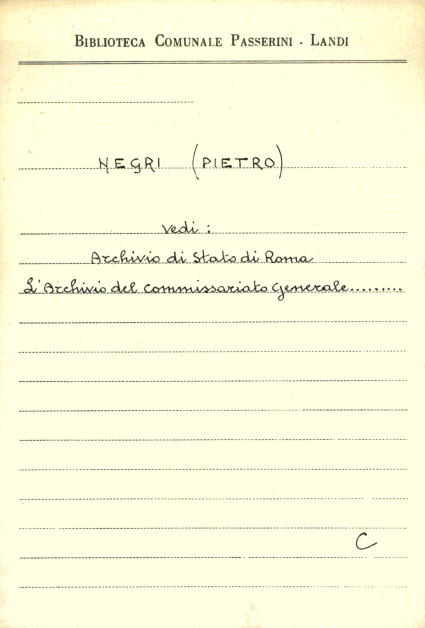 BIBLIOTECA COMUNALE PASSERINI - LANDI
NEGRI (PIETRO)
Vedi:
Archivio di Stato di Roma
L'Archivio del Commissariato Generale.........
C